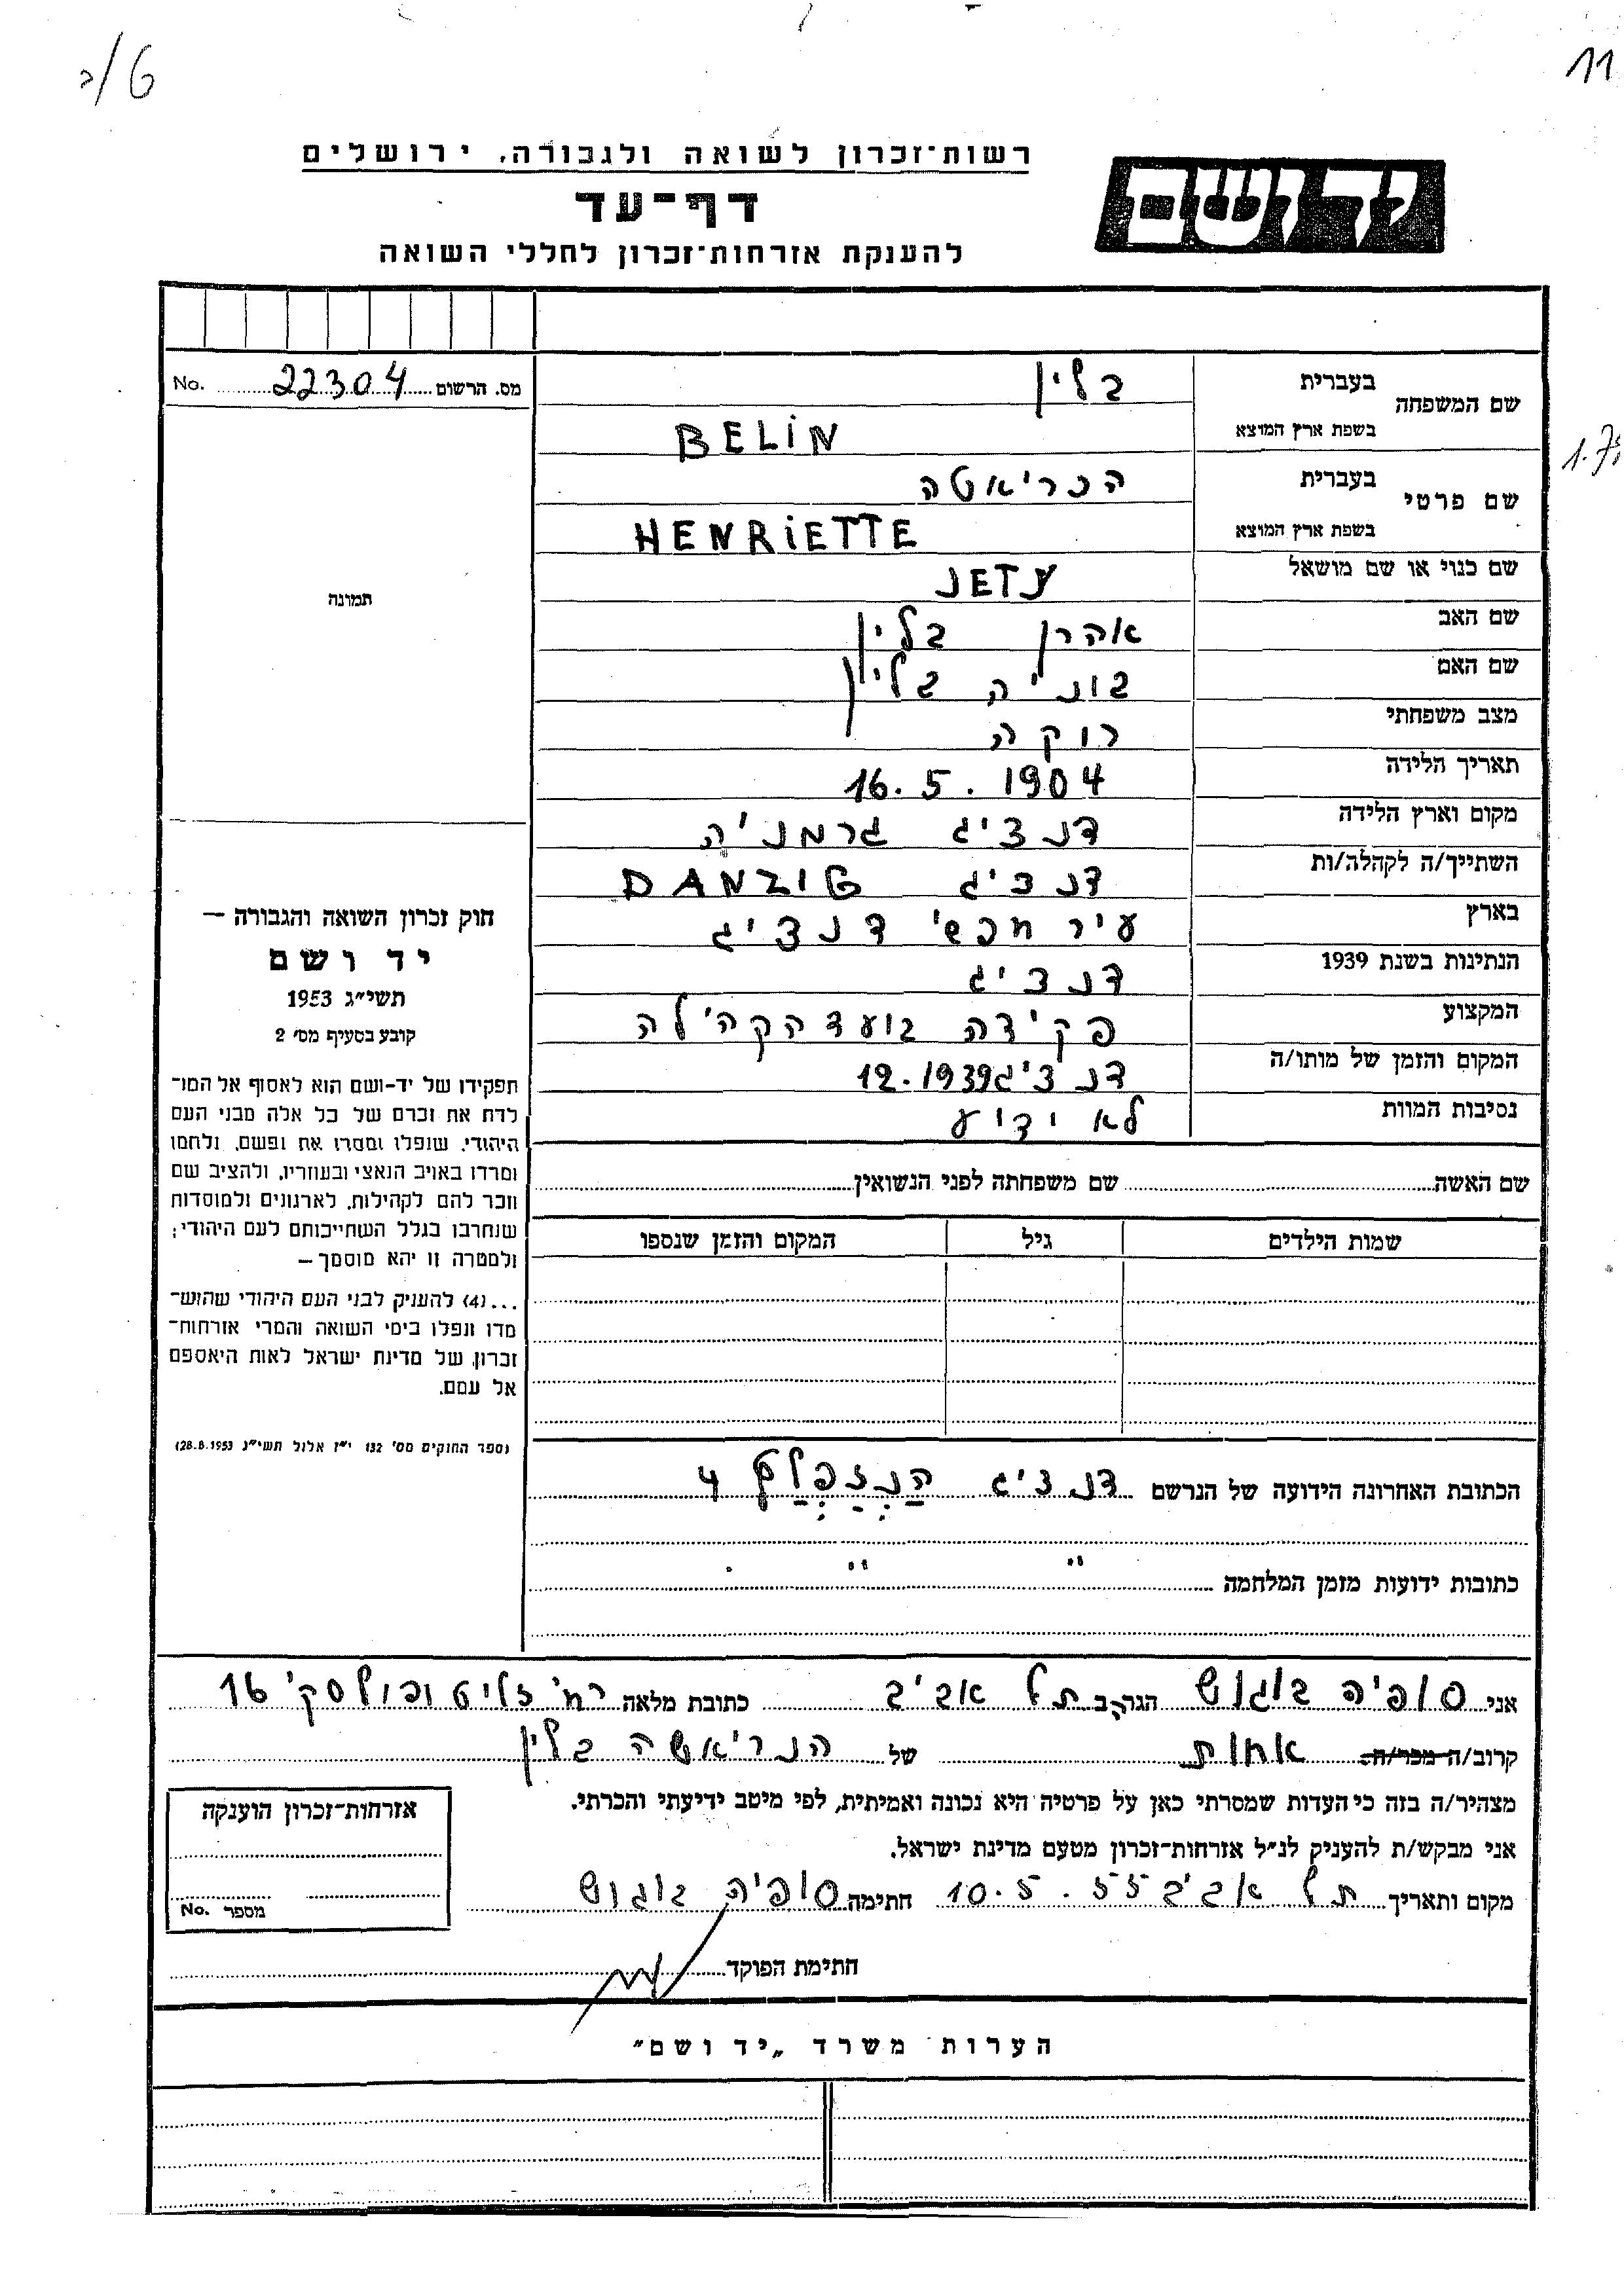 ג/6
11
רשות־זכרון לשואה ולגבורה, ירושלים
יד ושם
דף־עד
להענקת אזרחות־זכרון לחללי השואה
מס. הרשום 22304 No.
שם המשפחה בעברית בלין
בשפת ארץ המוצא BELIN
שם פרטי בעברית הנריאטה
בשפת ארץ המוצא HENRIETTE
שם כנוי או שם מושאל JETY
שם האב אהרן בלין
שם האם בוניה בלין
מצב משפחתי רוקה
תאריך הלידה 16.5.1904
מקום וארץ הלידה דנציג גרמניה
השתייך/ה לקהלה/ות דנציג DANZIG
בארץ עיר חפשי דנציג
הנתינות בשנת 1939 דנציג
המקצוע פקידה בועד הקהילה
המקום והזמן של מותו/ה דנציג 12.1939
נסיבות המוות לא ידוע
שם האשה שם משפחתה לפני הנשואין
שמות הילדים גיל המקום והזמן שנספו
תמונה
חוק זכרון השואה והגבורה —
יד ושם
תשי״ג 1953
קובע בסעיף מס׳ 2
תפקידו של יד-ושם הוא לאסוף אל המו־
לדת את זכרם של כל אלה מבני העם
היהודי, שנפלו ומסרו את נפשם, נלחמו
ומרדו באויב הנאצי ובעוזריו, ולהציב שם
וזכר להם לקהילות, לארגונים ולמוסדות
שנחרבו בגלל השתייכותם לעם היהודי;
ולמטרה זו יהא מוסמך —
...(4) להעניק לבני העם היהודי שהוש־
מדו ונפלו בימי השואה והמרי אזרחות־
זכרון של מדינת ישראל לאות היאספם
אל עמם.
(ספר החוקים מס׳ 132 י״ז אלול תשי״ג 28.8.1953)
הכתובת האחרונה הידועה של הנרשם דנציג 4
כתובות ידועות מזמן המלחמה " "
אני סופיה בוגוש הגר/ה ב תל אביב כתובת מלאה רח׳ זליטופולסקי 16
קרוב/ה מכר/ה אחות של הנריאטה בלין
מצהיר/ה בזה כי העדות שמסרתי כאן על פרטיה היא נכונה ואמיתית, לפי מיטב ידיעתי והכרתי.
אני מבקש/ת להעניק לנ״ל אזרחות־זכרון מטעם מדינת ישראל.
מקום ותאריך תל אביב 10.5.55 חתימה סופיה בוגוש
חתימת הפוקד
אזרחות־זכרון הוענקה
מספר No.
הערות משרד „יד ושם"